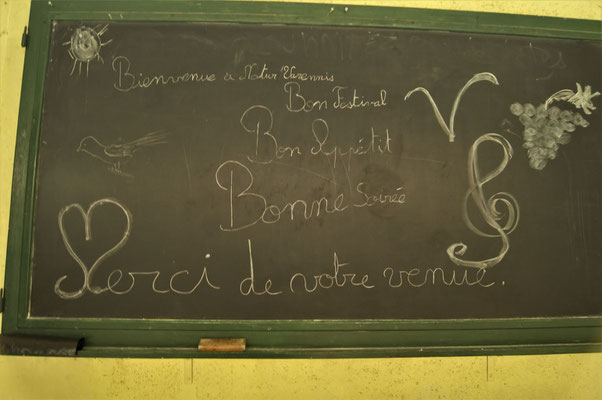 Bienvenue à Natur Varennis
Bon Festival
Bon Appétit
Bonne Soirée
Merci de votre venue.